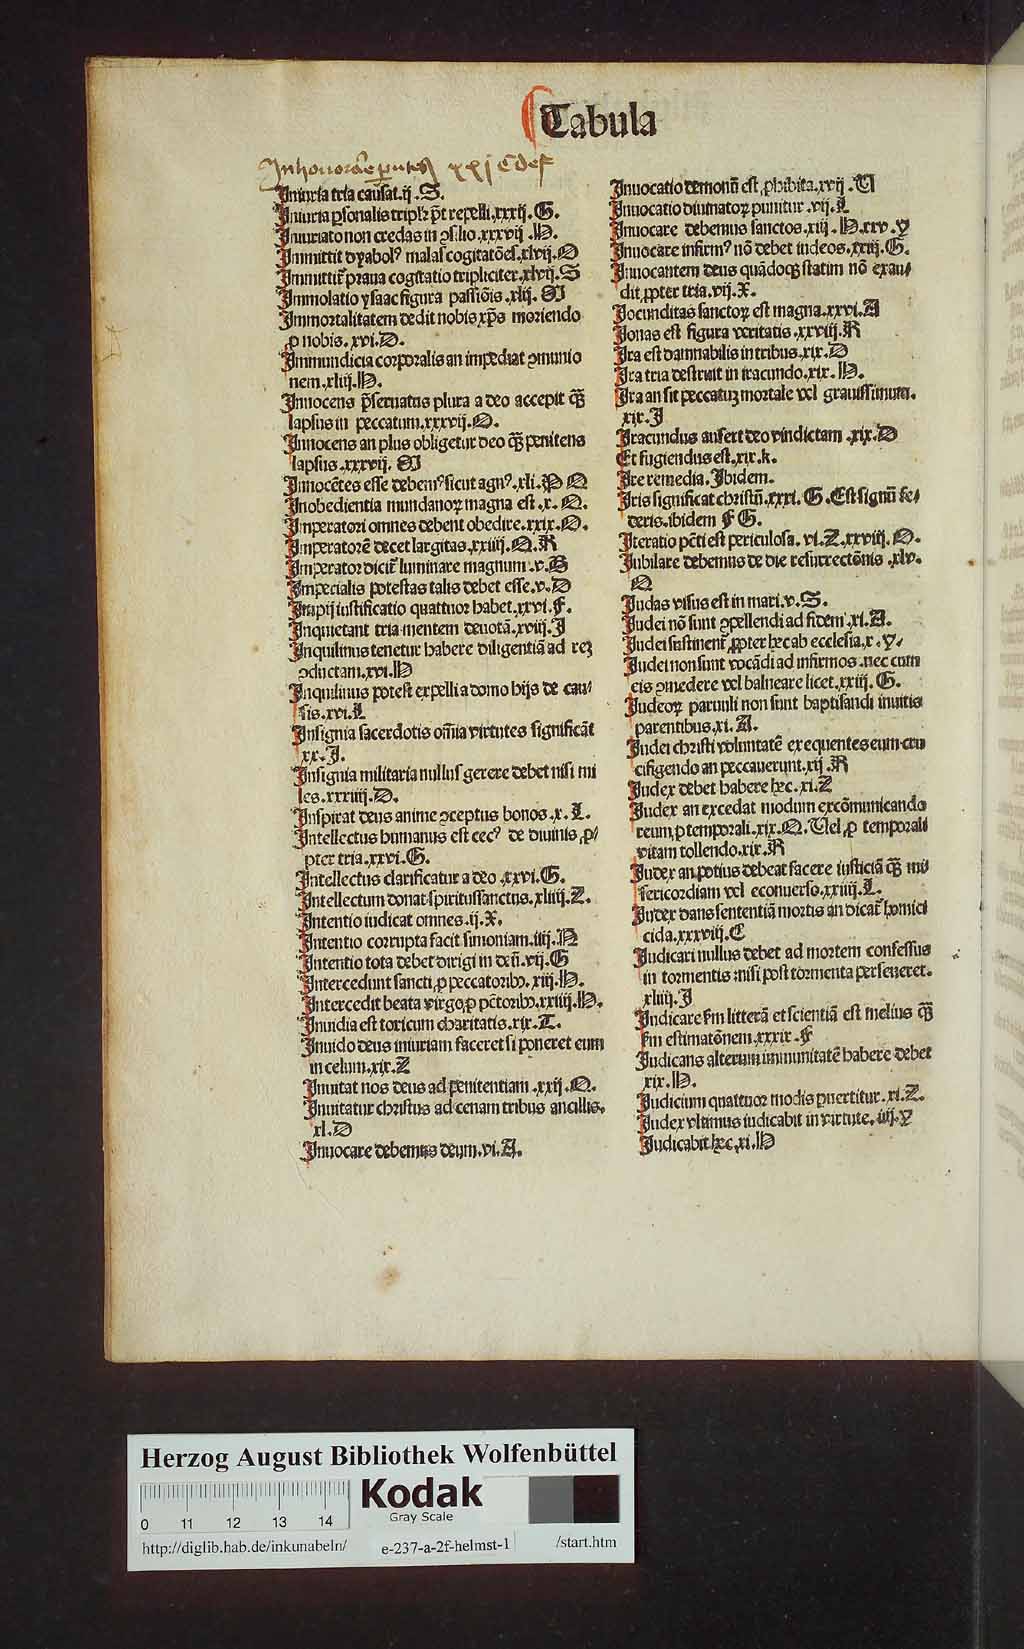 Tabula
Inhonorāre parentes xxj C d e f
Iniuria tria causat.ij.S.
Iniuria ꝑsonalis triplr̄ pōt repelli.xxxij.G.
Iniuriato non credas in ꝯsilio.xxxvij.H.
Immittit dyabolꝰ malas cogitatōes.xlvij.O
Immittit᷑ praua cogitatio tripliciter.xlvij.S
Immolatio ysaac figura passiōis.xlij.M
Immortalitatem dedit nobis xp̄s moriendo
ꝓ nobis.xvi.D.
Immundicia corporalis an impediat ꝯmunio
nem.xliij.H.
Innocens p̄seruatus plura a deo accepit qꝫ̄
lapsus in peccatum.xxxvij.O.
Innocens an plus obligetur deo qꝫ̄ penitens
lapsus.xxxvij.M
Innocētes esse debemꝰ sicut agnꝰ.xli.P Q
Inobedientia mundanoꝝ magna est.x.O.
Imperatori omnes debent obedire.xxix.O.
Imperatorē decet largitas.xxiiij.Q.R
Imperator dicit᷑ luminare magnum.v.B
Imperialis potestas talis debet esse.v.D
Impij iustificatio quattuor habet.xxvi.F.
Inquietant tria mentem deuotā.xviij.I
Inquilinus tenetur habere diligentiā ad reꝫ
ꝯductam.xvi.H
Inquilinus potest expelli a domo hijs de cau
sis.xvi.L
Insignia sacerdotis om̄ia virtutes significāt
xx.I.
Insignia militaria nullus gerere debet nisi mi
les.xxxiiij.D.
Inspirat deus anime ꝯceptus bonos.x.L.
Intellectus humanus est cecꝰ de diuinis ꝓ
pter tria.xxvi.G.
Intellectus clarificatur a deo.xxvi.G.
Intellectum donat spiritussanctus.xliiij.Z.
Intentio iudicat omnes.ij.X.
Intentio corrupta facit simoniam.iiij.N
Intentio tota debet dirigi in deū.vij.G
Intercedunt sancti ꝓ peccatoribꝫ.xiij.H.
Intercedit beata virgo ꝓ pctōribꝫ.xxiiij.H.
Inuidia est toxicum charitatis.xix.T.
Inuido deus iniuriam faceret si poneret eum
in celum.xix.Z
Inuitat nos deus ad penitentiam.xxij.O.
Inuitatur christus ad cenam tribus ancillis.
xl.D
Inuocare debemus deum.vi.A.
Inuocatio demonū est ꝓhibita.xvij.U
Inuocatio diuinatoꝝ punitur.vij.L
Inuocare debemus sanctos.xiij.H.xxv.Y
Inuocare infirmꝰ nō debet iudeos.xxiij.G.
Inuocantem deus quādoqꝫ statim nō exau
dit ꝓpter tria.vij.X.
Iocunditas sanctoꝝ est magna.xxvi.A
Ionas est figura veritatis.xxviij.R
Ira est damnabilis in tribus.xix.D
Ira tria destruit in iracundo.xix.H.
Ira an sit peccatuꝫ mortale vel grauissimum.
xix.I
Iracundus aufert deo vindictam.xix.D
Et fugiendus est.xix.k.
Ire remedia.Ibidem.
Iris significat christū.xxxi.G.Est signū fe
deris.ibidem F G.
Iteratio pctī est periculosa.vi.Z.xxviij.O.
Iubilare debemus de die resurrectōnis.xlv.
Q
Iudas visus est in mari.v.S.
Iudei nō sunt ꝯpellendi ad fidem.xi.A.
Iudei sustinent᷑ ꝓpter hec ab ecclesia.x.y.
Iudei non sunt vocādi ad infirmos.nec cum
eis ꝯmedere vel balneare licet.xxiij.G.
Iudeoꝝ paruuli non sunt baptisandi inuitis
parentibus.xi.A.
Iudei christi voluntatē exequentes eum cru
cifigendo an peccauerunt.xij.R
Iudex debet habere hec.xi.Z
Iudex an excedat modum excōmunicando
reum ꝓ temporali.xix.Q.Uel ꝓ temporali
vitam tollendo.xix.R
Iudex an potius debeat facere iusticiā qꝫ̄ mi
sericordiam vel econuerso.xxiiij.L.
Iudex dans sententiā mortis an dicat᷑ homici
cida.xxxviij.C
Iudicari nullus debet ad mortem confessus
in tormentis:nisi post tormenta perseueret.
xliiij.I
Iudicare ẜm litterā et scientiā est melius qꝫ̄
ẜm estimatōnem.xxxix.F
Iudicans alterum immunitatē habere debet
xix.H.
Iudicium quattuor modis ꝑuertitur.xi.Z.
Iudex vltimus iudicabit in virtute.iiij.Y
Iudicabit hec.xi.H
Herzog August Bibliothek Wolfenbüttel
Kodak
Gray Scale
0 11 12 13 14
http://diglib.hab.de/inkunabeln/ e-237-a-2f-helmst-1 /start.htm